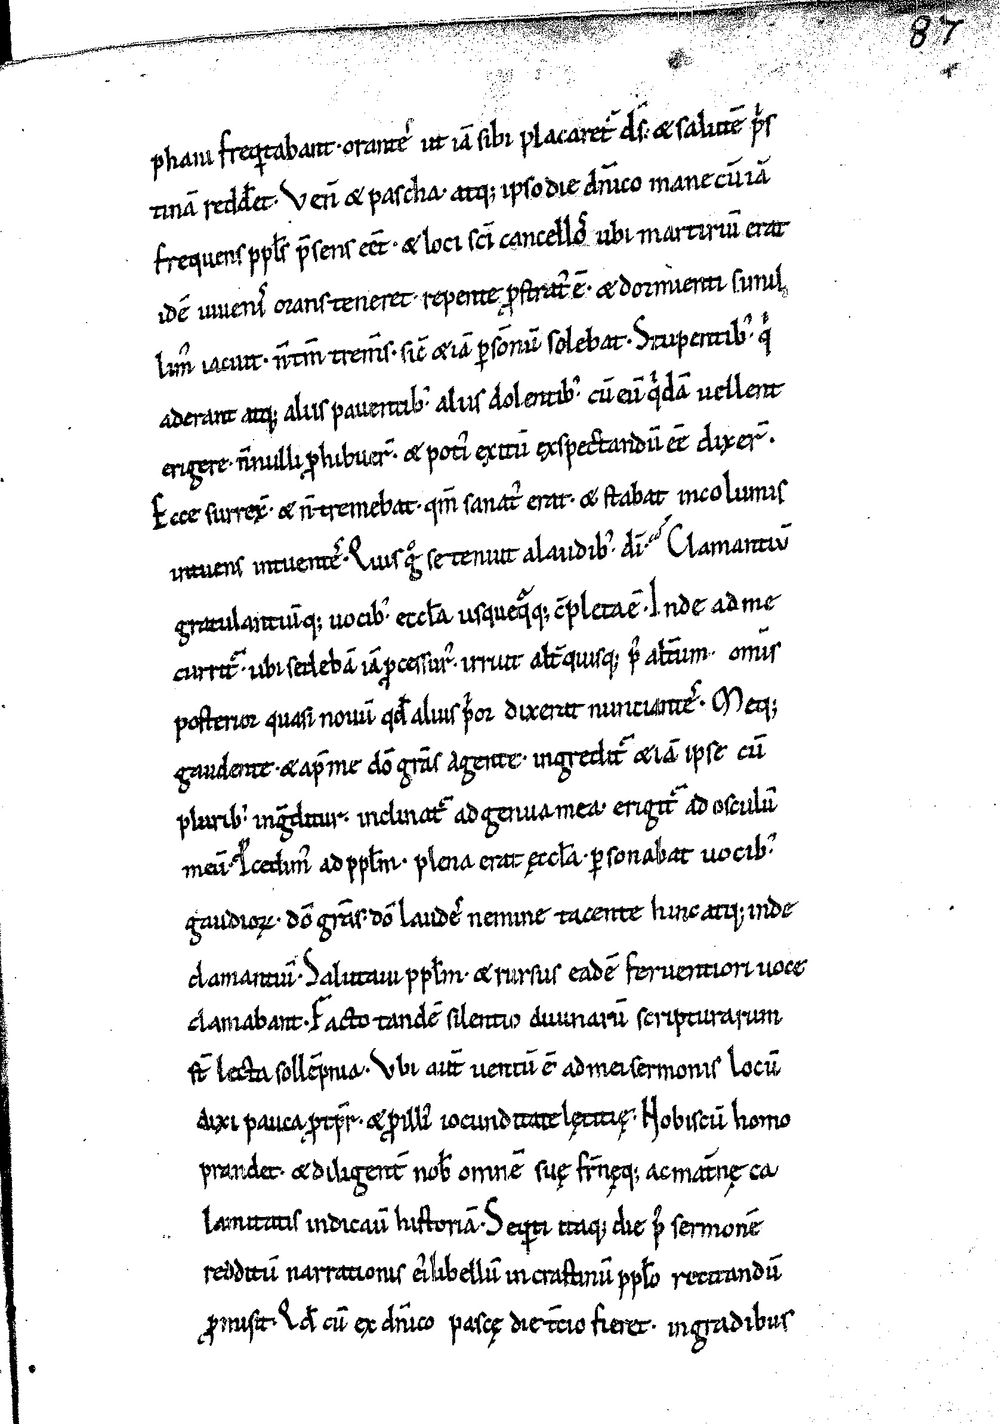 87
phani freq̄tabant · orantes ut iā sibi placaret᷑ ds̄ · & salutē pͥs
tinā redd̄et · Veñ & pascha · atq; ipso die dn̄ico mane cū iā
frequens ppl̄s p̄sens eēt · & loci sc̄i cancellos ubi martiriū erat
idē iuuenis orans teneret · repente ꝓstrat᷒ ē · & dormienti simil
lim᷒ iacuit · n̄ tm̄ trem̄s · sic̄ & iā ꝑ sōnū solebat · Stupentib᷒ qͥ
aderant atq; aliis pauentib᷒ aliis dolentib᷒ cū eū qͥdā uellent
erigere · n̄nulli ꝓhibuer̄ · & poti᷒ exitū exspectandū eē dixer̄ ·
Ecce surrex̄ · & n̄ tremebat · qm̄ sanat᷒ erat · & stabat incolumis
intuens intuentes · Quis gͦ se tenuit a laudib᷒ dī · Clamantiū
gratulantiūq; uocib᷒ eccl̄a usqueq̄q; c̄pleta ē · Inde ad me
currit᷑ · ubi sedebā iā ꝓcessur᷒ · irruit alt̄ quisq; p᷒ alt̄um · omīs
posterior quasi nouū qd̄ alius pͥor dixerat nuntiantes · Meq;
gaudente · & ap̄ me dō gr̄as agente · ingredit᷑ & iā ipse cū
plurib᷒ ingͣditur · inclinat᷑ ad genua mea erigit᷑ ad osculū
meū · P̱cedim᷒ ad ppl̄m · plena erat ęccl̄a · ꝑsonabat uocib᷒
gaudioꝝ · dō gr̄as · dō laudes nemine tacente hinc atq; inde
clamantiū · Salutaui ppl̄m · & rursus eadē feruentiori uoce
clamabant · Facto tandē silentio diuinarū scripturarum
st̄ lecta sollēpnia · Vbi aut̄ uentū ē ad mei sermonis locū
dixi pauca ꝓ tp̄r · & ꝓ illi᷒ iocunditate lętitię · Nobiscū homo
prandet · & diligent̄ nob̄ omnē suę fr̄nęq; ac mat̄nę ca
lamitatis indicauī historiā · Seq̄nti itaq; die p᷒ sermonē
redditū narrationis ei᷒ libellū in crastinū ppl̄o recitandū
ꝓmisit · Qd̄ cū ex dn̄ico pascę die t̄cio fieret · in gradibus